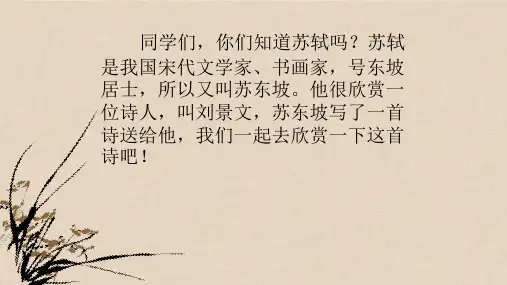 同学们，你们知道苏轼吗？苏轼
是我国宋代文学家、书画家，号东坡
居士，所以又叫苏东坡。他很欣赏一
位诗人，叫刘景文，苏东坡写了一首
诗送给他，我们一起去欣赏一下这首
诗吧！